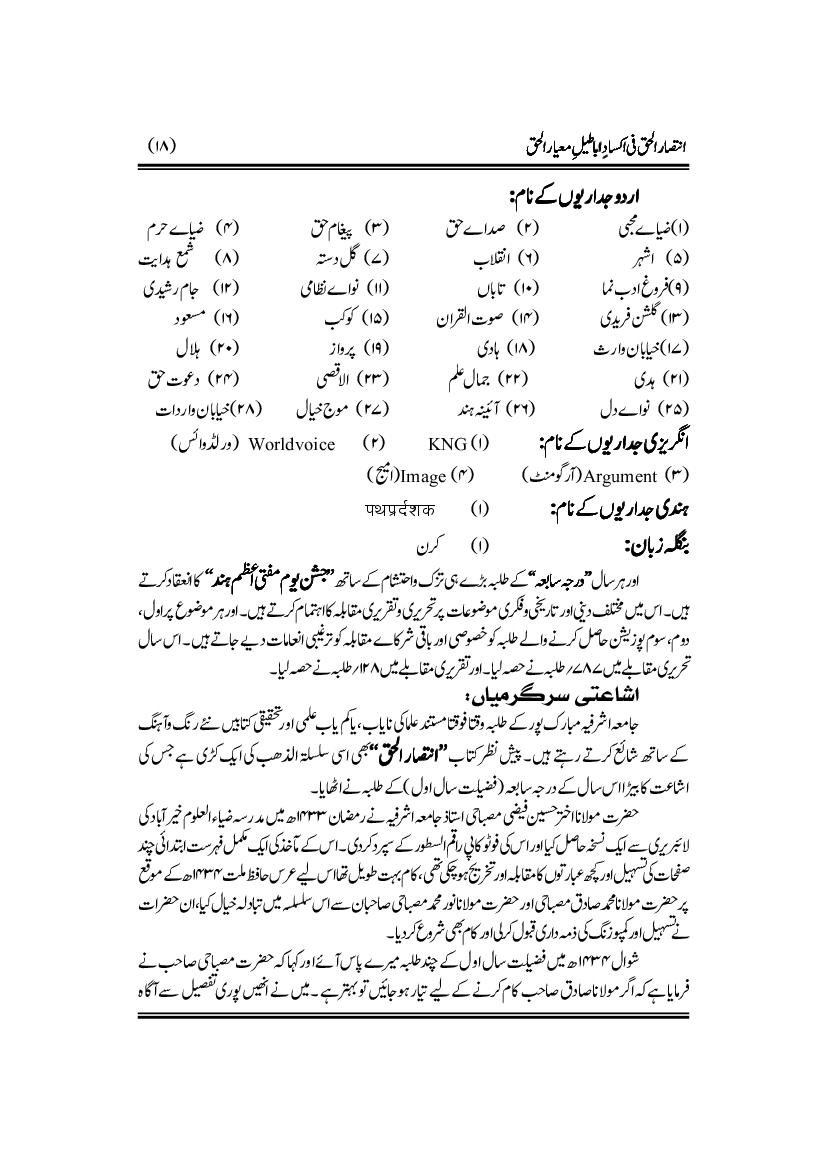 انتصار الحق فی اکساد اباطیل معیار الحق (۱۸)
اردو جداریوں کے نام:
(۱) ضیاے مجبی (۲) صداے حق (۳) پیغام حق (۴) ضیاے حرم
(۵) اشہر (۶) انقلاب (۷) گل دستہ (۸) شمع ہدایت
(۹) فروغ ادب نما (۱۰) تاباں (۱۱) نواے نظامی (۱۲) جام رشیدی
(۱۳) گلشن فریدی (۱۴) صوت القران (۱۵) کوکب (۱۶) مسعود
(۱۷) خیابان وارث (۱۸) ہادی (۱۹) پرواز (۲۰) ہلال
(۲۱) ہدی (۲۲) جمال علم (۲۳) الاقصی (۲۴) دعوت حق
(۲۵) نواے دل (۲۶) آئینہ ہند (۲۷) موج خیال (۲۸) خیابان واردات
انگریزی جداریوں کے نام: (۱) KNG (۲) Worldvoice (ورلڈ وائس)
(۳) Argument (آرگومنٹ) (۴) Image (امیج)
ہندی جداریوں کے نام: (۱) पथप्रर्दशक
بنگلہ زبان: (۱) کرن
اور ہر سال ”درجہ سابعہ“ کے طلبہ بڑے ہی تزک و احتشام کے ساتھ ”جشن یوم مفتی اعظم ہند“ کا انعقاد کرتے
ہیں۔ اس میں مختلف دینی اور تاریخی و فکری موضوعات پر تحریری و تقریری مقابلہ کا اہتمام کرتے ہیں۔ اور ہر موضوع پر اول،
دوم، سوم پوزیشن حاصل کرنے والے طلبہ کو خصوصی اور باقی شرکاے مقابلہ کو ترغیبی انعامات دیے جاتے ہیں۔ اس سال
تحریری مقابلے میں ۷۸۷؍ طلبہ نے حصہ لیا۔ اور تقریری مقابلے میں ۱۲۸؍ طلبہ نے حصہ لیا۔
اشاعتی سرگرمیاں:
جامعہ اشرفیہ مبارک پور کے طلبہ وقتا فوقتا مستند علما کی نایاب، یا کم یاب علمی اور تحقیقی کتابیں نئے رنگ و آہنگ
کے ساتھ شائع کرتے رہتے ہیں۔ پیش نظر کتاب ”انتصار الحق“ بھی اسی سلسلۃ الذھب کی ایک کڑی ہے جس کی
اشاعت کا بیڑا اس سال کے درجہ سابعہ (فضیلت سال اول) کے طلبہ نے اٹھایا۔
حضرت مولانا اختر حسین فیضی مصباحی استاذ جامعہ اشرفیہ نے رمضان ۱۴۳۳ھ میں مدرسہ ضیاء العلوم خیر آباد کی
لائبریری سے ایک نسخہ حاصل کیا اور اس کی فوٹو کاپی راقم السطور کے سپرد کر دی۔ اس کے مآخذ کی ایک مکمل فہرست ابتدائی چند
صفحات کی تسہیل اور کچھ عبارتوں کا مقابلہ اور تخریج ہو چکی تھی، کام بہت طویل تھا اس لیے عرس حافظ ملت ۱۴۳۴ھ کے موقع
پر حضرت مولانا محمد صادق مصباحی اور حضرت مولانا نور محمد مصباحی صاحبان سے اس سلسلہ میں تبادلہ خیال کیا، ان حضرات
نے تسہیل اور کمپوزنگ کی ذمہ داری قبول کر لی اور کام بھی شروع کر دیا۔
شوال ۱۴۳۴ھ میں فضیلت سال اول کے چند طلبہ میرے پاس آئے اور کہا کہ حضرت مصباحی صاحب نے
فرمایا ہے کہ اگر مولانا صادق صاحب کام کرنے کے لیے تیار ہو جائیں تو بہتر ہے۔ میں نے انھیں پوری تفصیل سے آگاہ